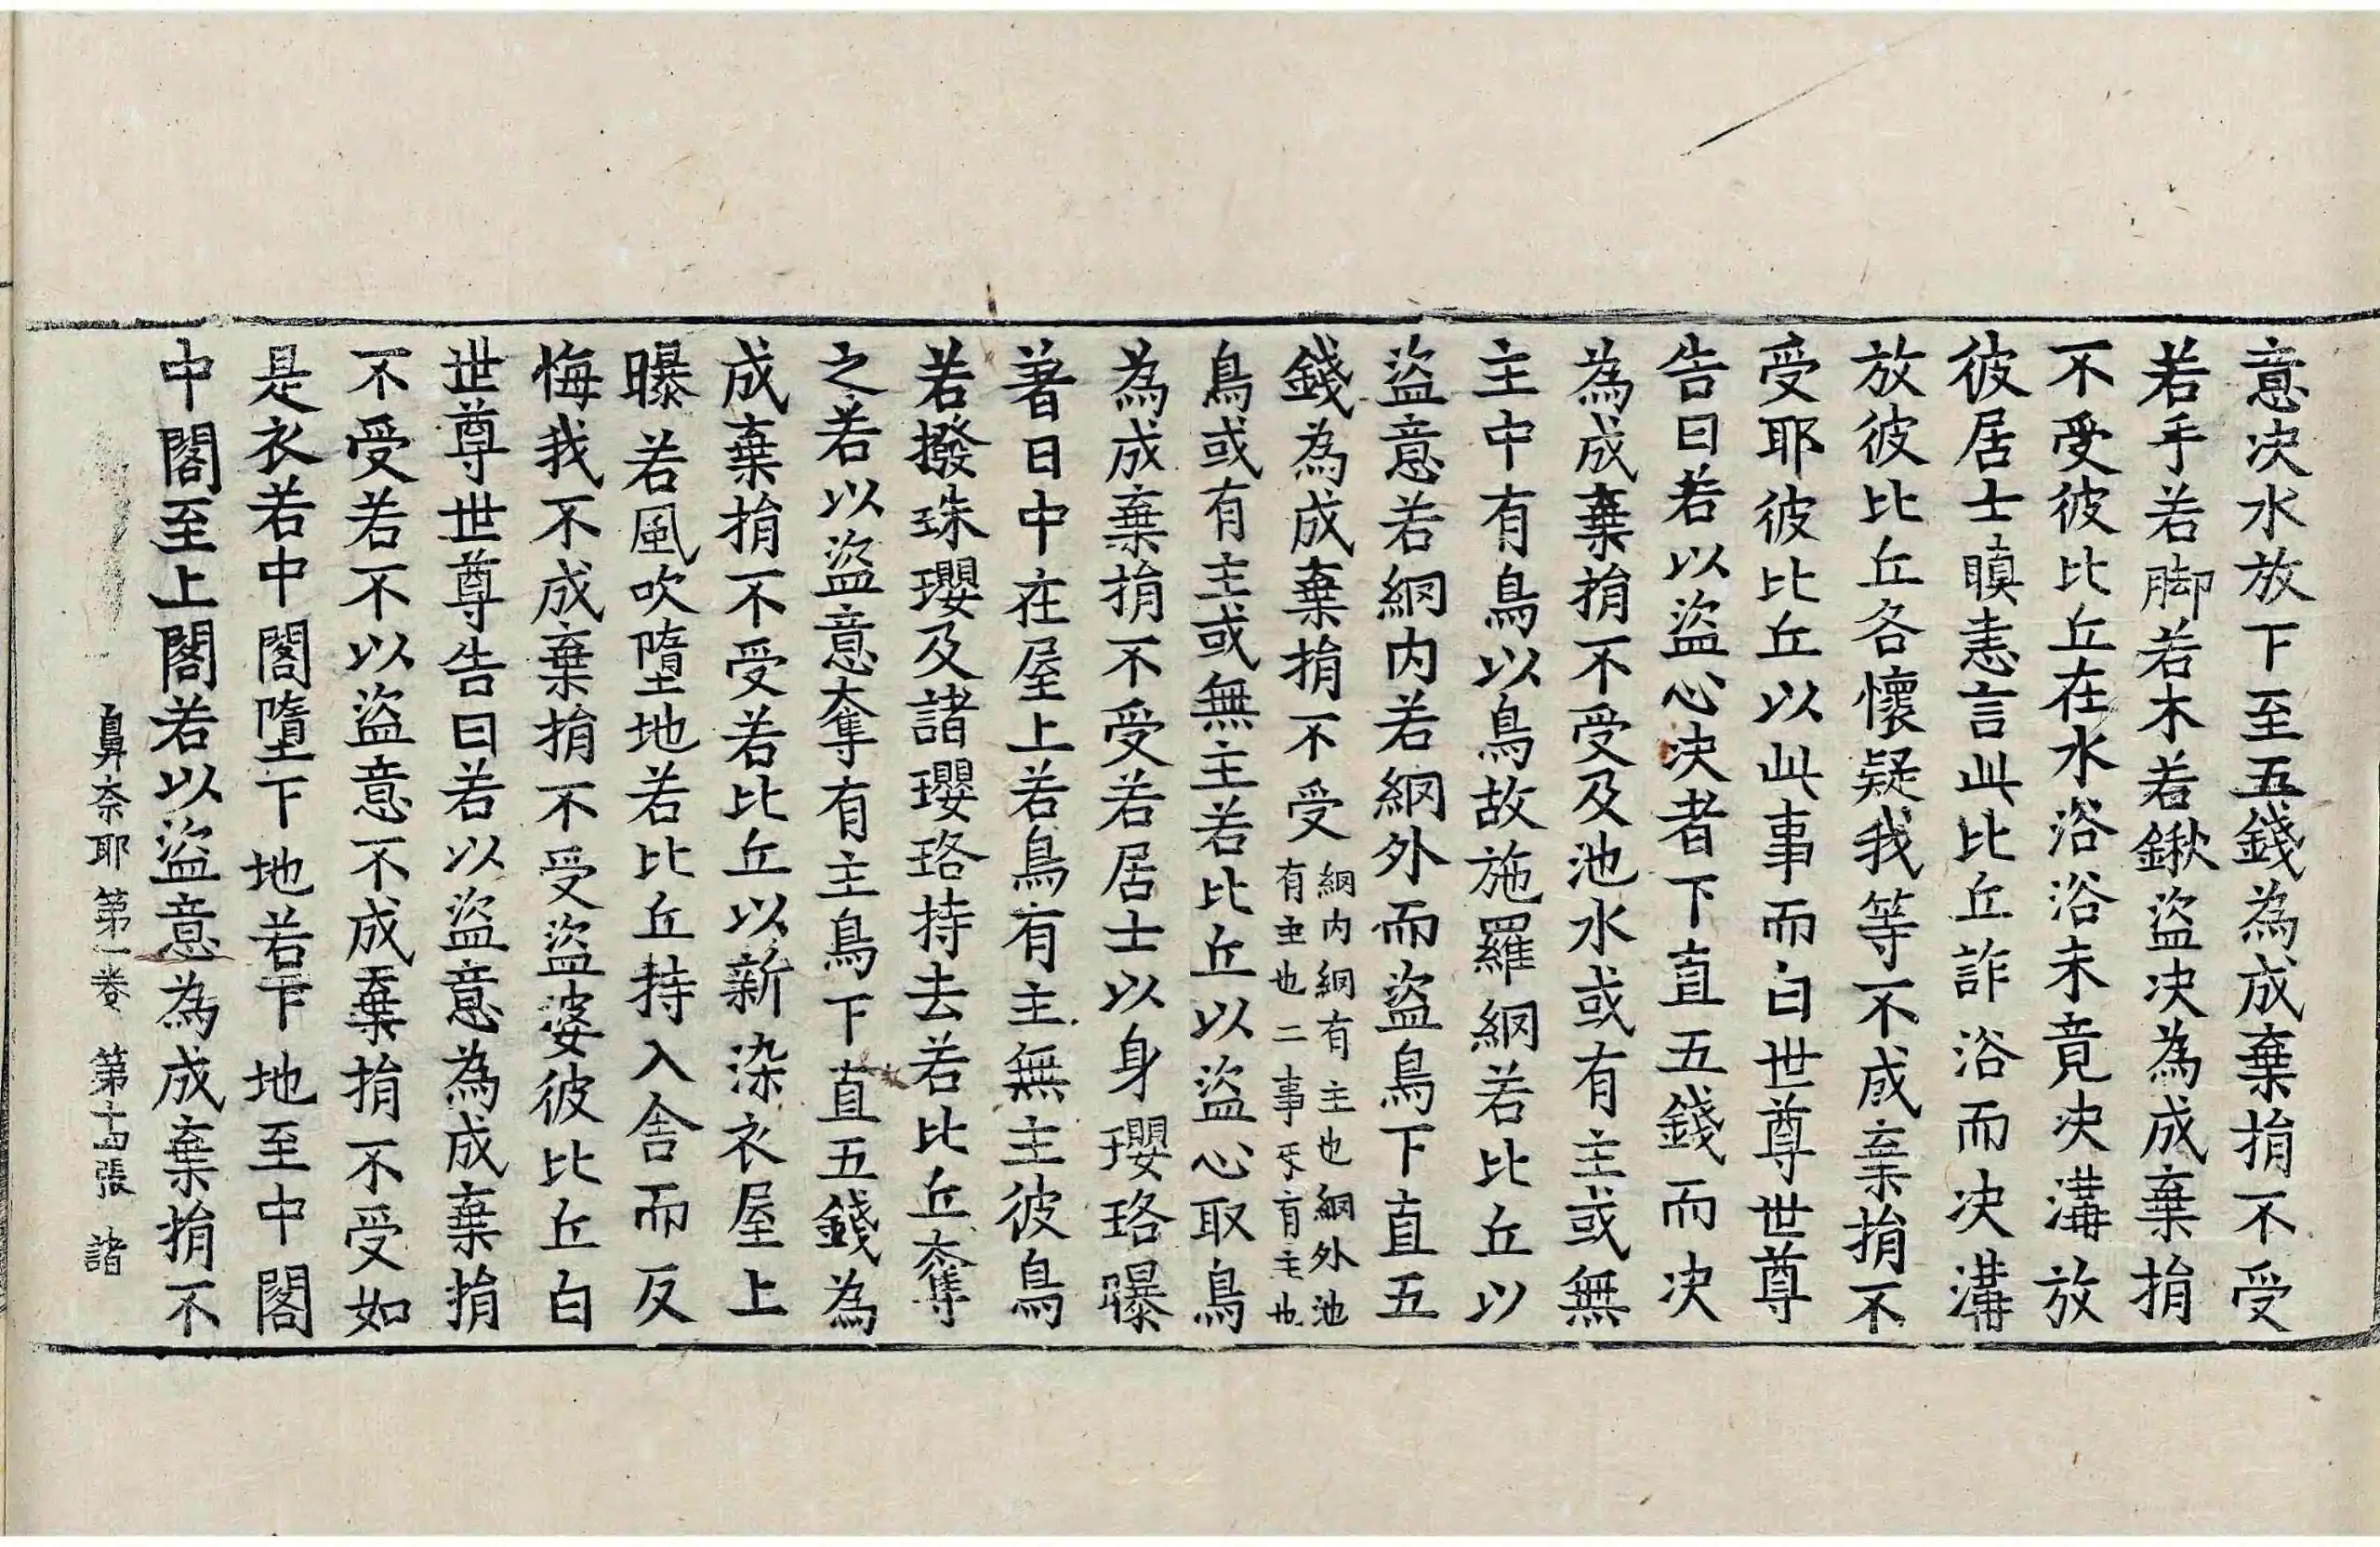 意決水放下至五錢為成棄捐不受
若手若脚若木若鍬盜决為成棄捐
不受彼比丘在水浴浴未竟决溝放
彼居士瞋恚言此比丘詐浴而决溝
放彼比丘各懷疑我等不成棄捐不
受耶彼比丘以此事而白世尊世尊
告曰若以盜心决者下直五錢而决
為成棄捐不受及池水或有主或無
主中有鳥以鳥故施羅網若比丘以
盜意若網内若網外而盜鳥下直五
錢為成棄捐不受網内網有主也網外池有主也二事英有主也
鳥或有主或無主若比丘以盜心取鳥
為成棄捐不受若居士以身瓔珞曝
著日中在屋上若鳥有主無主彼鳥
若撥珠瓔及諸瓔珞持去若比丘奪
之若以盜意奪有主鳥下直五錢為
成棄捐不受若比丘以新染衣屋上
曝若風吹墮地若比丘持入舍而反
悔我不成棄捐不受盜婆彼比丘白
世尊世尊告曰若以盜意為成棄捐
不受若不以盜意不成棄捐不受如
是衣若中閣墮下地若下地至中閣
中閣至上閣若以盜意為成棄捐不
鼻奈耶第一卷 第十四張 諸